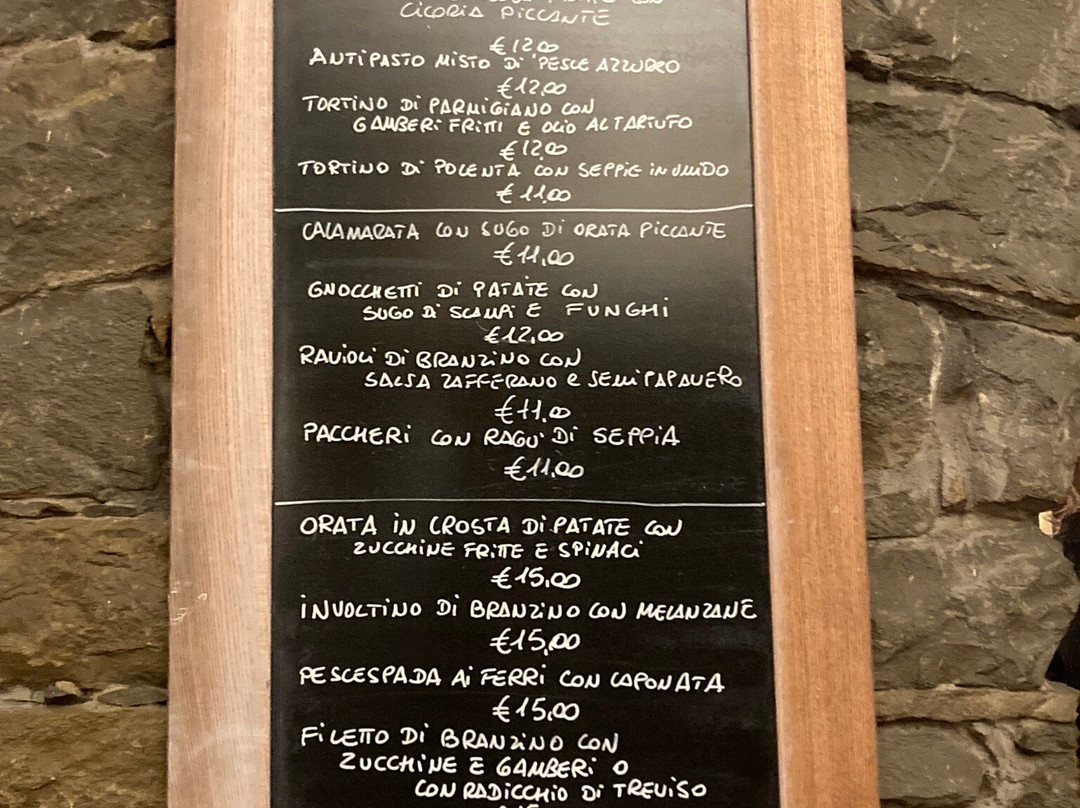 CICORIA PICCANTE
€12,00
ANTIPASTO MISTO DI PESCE AZZURRO
€12,00
TORTINO DI PARMIGIANO CON
GAMBERI FRITTI E OLIO AL TARTUFO
€12,00
TORTINO DI POLENTA CON SEPPIE IN UMIDO
€11,00
CALAMARATA CON SUGO DI ORATA PICCANTE
€11,00
GNOCCHETTI DI PATATE CON
SUGO DI SCAMPI E FUNGHI
€12,00
RAVIOLI DI BRANZINO CON
SALSA ZAFFERANO e SEMI PAPAVERO
€11,00
PACCHERI CON RAGU' DI SEPPIA
€11,00
ORATA IN CROSTA DI PATATE CON
ZUCCHINE FRITTE E SPINACI
€15,00
INVOLTINO DI BRANZINO CON MELANZANE
€15,00
PESCESPADA AI FERRI CON CAPONATA
€15,00
FILETTO DI BRANZINO CON
ZUCCHINE E GAMBERI O
CON RADICCHIO DI TREVISO